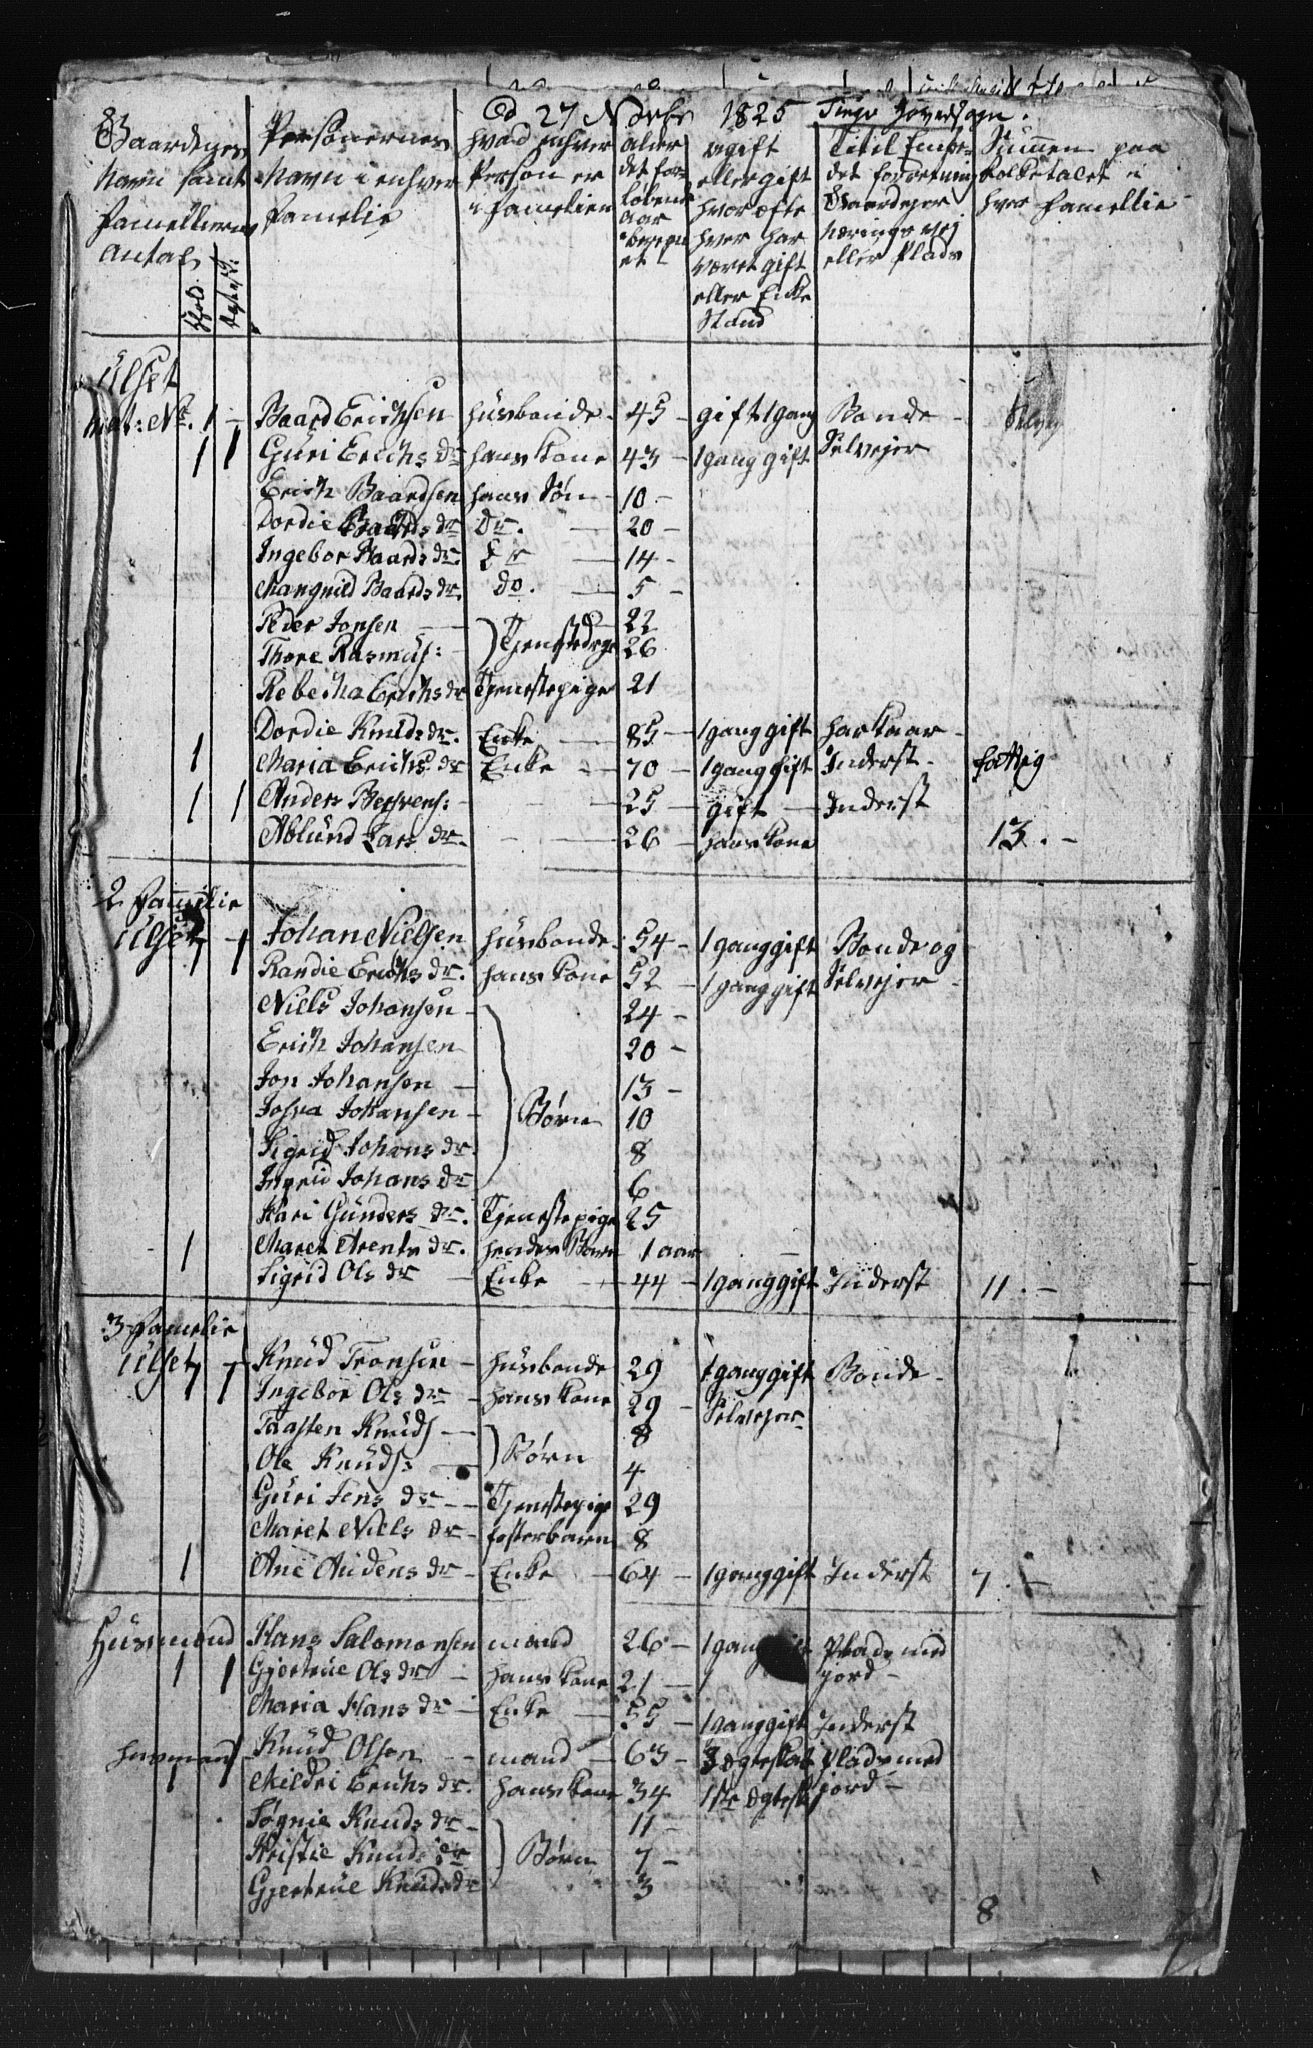 Od 27 Novbr 1825 Tings Hovedsogn.
Gaardenes Navn samt Famellierns Antal
Personernes Navn i enhver Famelie
Hvad enhver Person er i Famelien
alder det for løbende aar beregnet
Ugift eller gift hvor ofte hver har været gift eller Enke Stand
Titel Embede forretning Gaardejer Nærings vej eller Plads
Summen paa Folketalet i hver Famellie
Ulset
Mat: No. 1 - Baard Erichsen Husbonde - 45 - gift 1 gang Bonde -
1 1 Guri Erichs dr hans Kone 43 - 1 gang gift Selvejer
Erich Baardsen hans Søn - 10 -
Dordie Baards dr Dr. - 20 -
Ingebor Baards dr. Dr - 14 -
Mangnild Baards dr. do. - 5 -
Peder Jonsen - 22
Thore Rasmus: ) Tjenstedrge 26
Rebecha Erichs dr Tjenestepige 21
Dordie Knuds dr. Enke - 85 - 1 gang gift har kaar -
1 Maria Erichs dr Enke - 70 - 1 gang gift Inderst - fattig
1 1 Anders Behrens: - 25 - gift - Inderst
Ablund Lars dr. - 26 - hans Kone 13. -
2 Familie
Ulset 1 - Johan Nielsen Husbonde - 54 - 1 gang gift Bonde og
1 1 Randie Erichs dr. hans Kone 52 - 1 gang gift Selvejer -
Niels Johansen - 24 -
Erich Johansen 20 -
Jon Johansen - 13 -
Josva Johansen - ) Børn 10
Sigrid Johans dr. 8
Ingrid Johans dr 6
Kari Gunders dr. Tjenestepige 25
Maret Arents dr. hendes Barn 1 aar -
1 Sigrid Ols dr - Enke - 44 - 1 gang gift Inderst 11. -
3 Famelie
Ulset 1 - Knud Tronsen - Husbonde 29 1 gang gift Bonde -
1 1 Ingebor Ols dr - hans Kone 29 - Selvejer
Taasten Knuds - 8
Ole Knuds: - ) Børn 4
Guri Jens dr - Tjenestepige 29
Maret Niels dr - fosterbarn 8
1 Ane Audens dr - Enke - 64 - 1 gang gift Inderst 7. -
Husmand Hans Salomonsen mand 26 - 1 gang Plads med
1 1 Gjertrue Ols dr - hans Kone 21 - 1 jord -
Maria Hans dr - Enke - 55 - 1 gang gift Inderst
husmand Knud Olsen - mand - 63 - 3 Egteskab plads med
1 1 Mildri Erichs dr. hans Kone 34 1ste Egtesk jord -
Søgnie Knuds dr - 11 -
Kristie Knuds dr ) Børn 7 -
Gjertrue Knuds dr 3
8